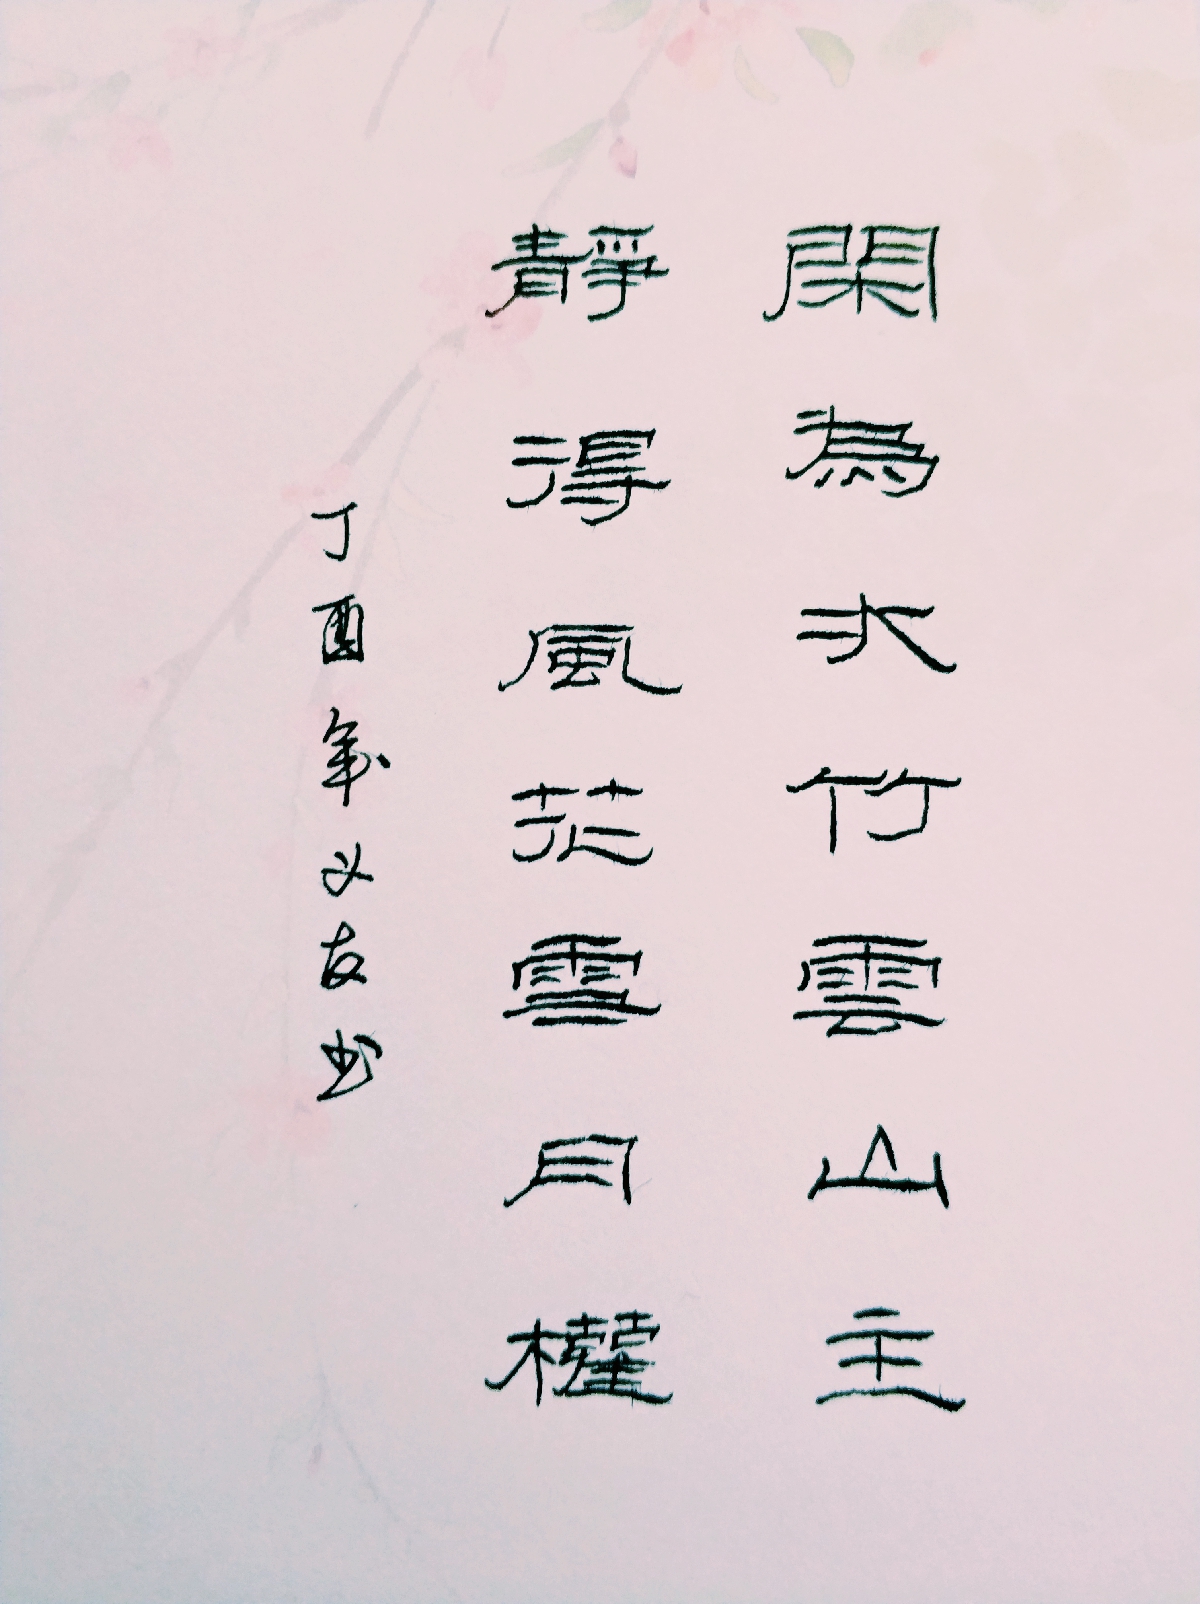 閑為水竹雲山主
靜得風花雪月權
丁酉年义友书